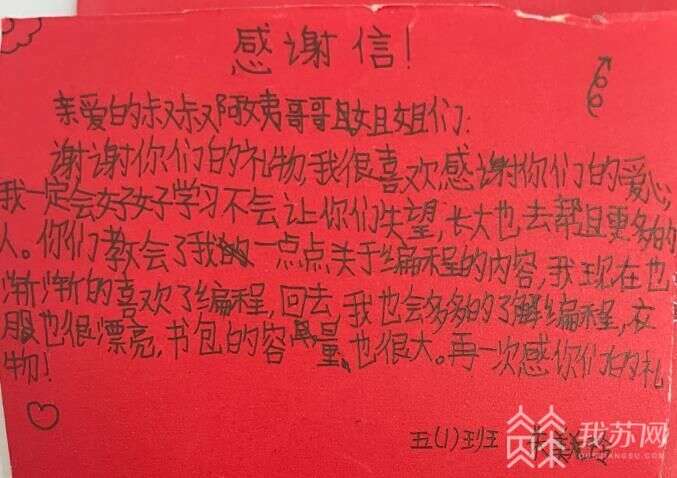 感谢信!
亲爱的叔叔阿姨哥哥姐姐们:
谢谢你们的礼物,我很喜欢感谢你们的爱心,
我一定会好好学习不会让你们失望,长大也去帮且更多的
人。你们教会了我一点点关于编程的内容,我现在也
渐渐的喜欢了编程,回去,我也会多多的了解编程,衣
服也很漂亮,书包的容量也很大。再一次感你们的礼
物!
五(1)班
我苏网